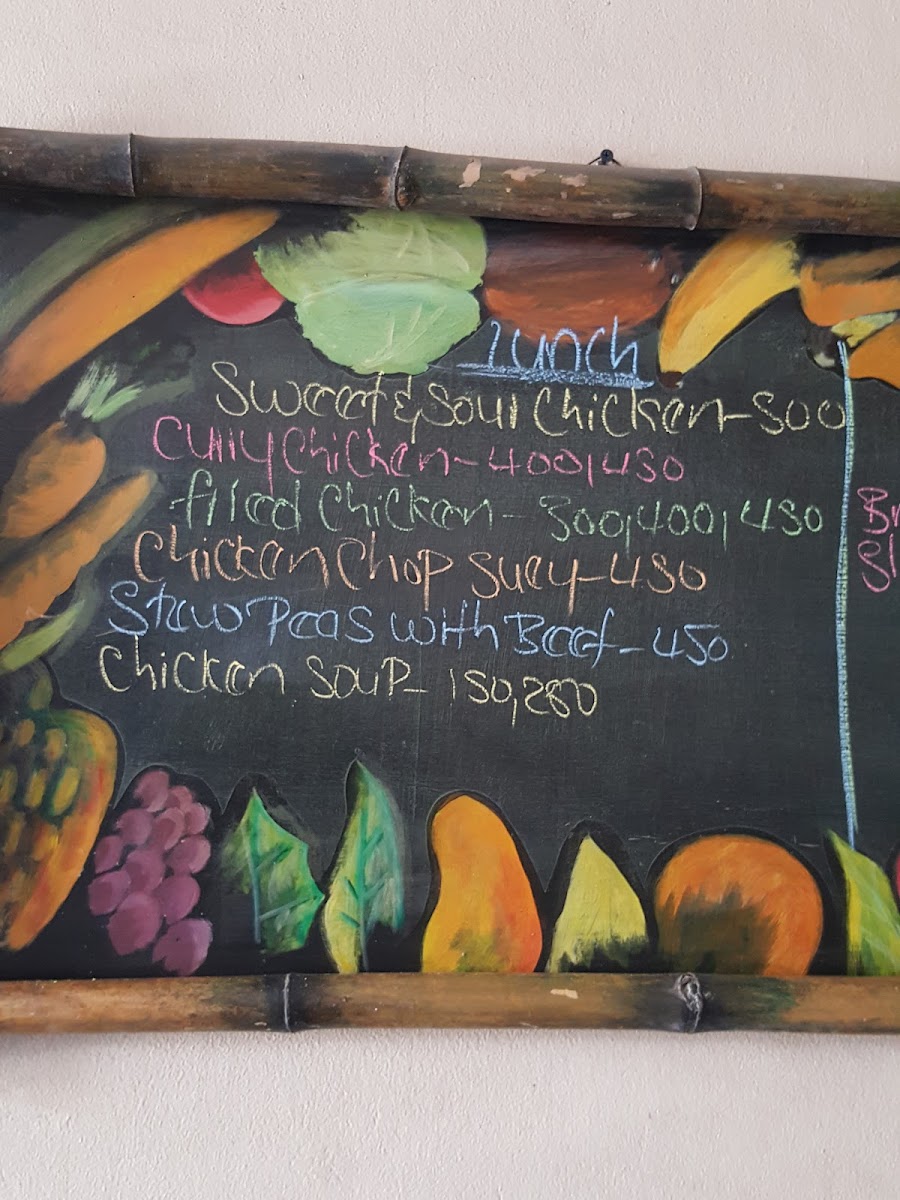 Lunch
Sweet & Sour Chicken - 500
Curry Chicken - 400,450
fried Chicken - 300,400,450
Chicken Chop Suey - 450
Stew Peas with Beef - 450
Chicken Soup - 150,250